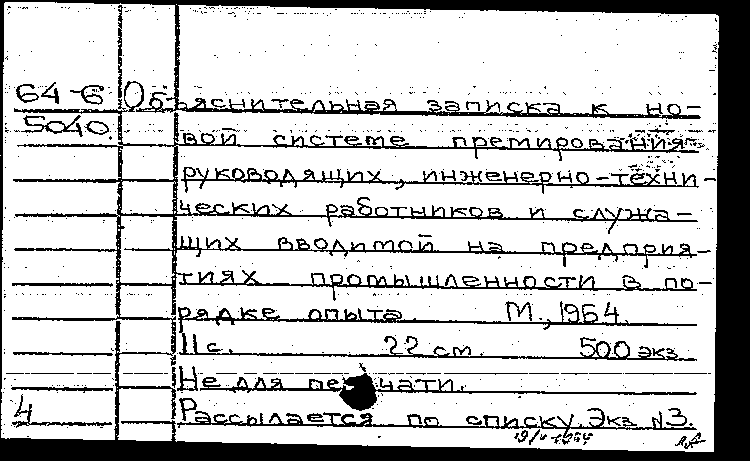 64-6 Объяснительная записка к но-
5040. вой системе премирования
руководящих, инженерно-техни-
ческих работников и служа-
щих вводимой на предприя-
тиях промышленности в по-
рядке опыта. М., 1964.
11 с. 22 см. 500 экз.
Не для печати.
4 Рассылается по списку. Экз. N 3.